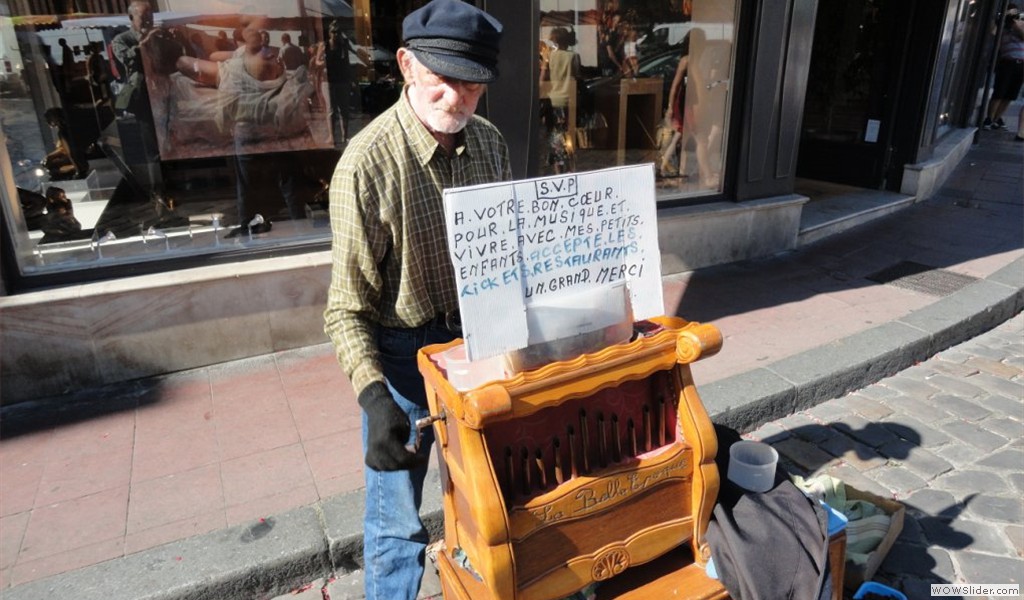 S.V.P
A.VOTRE.BON.CŒUR.
POUR.LA.MUSIQUE.ET.
VIVRE.AVEC.MES.PETITS.
ENFANTS.ACCEPTE.LES.
TICKETS.RESTAURANTS.
UN.GRAND.MERCI
La Belle Epoque
WOWSlider.com